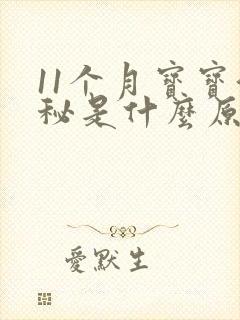 11个月寶寶
秘是什麼原
愛默生